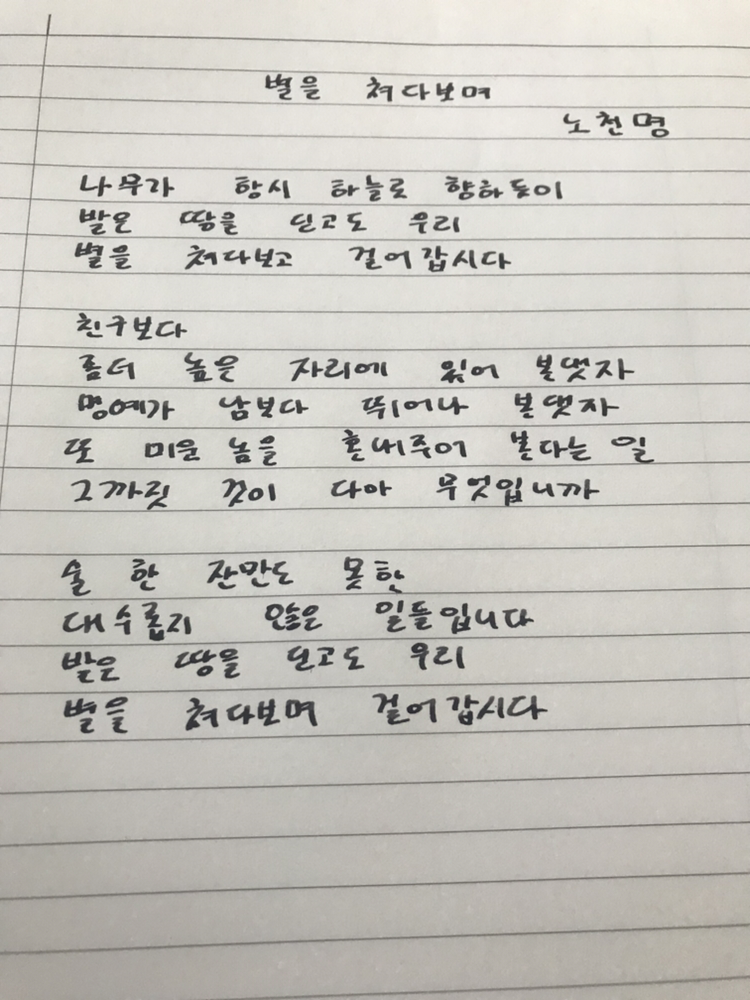 별을 쳐다보며
노천명
나무가 항시 하늘로 향하듯이
발은 땅을 딛고도 우리
별을 쳐다보고 걸어갑시다
친구보다
좀더 높은 자리에 있어 본댓자
명예가 남보다 뛰어나 본댓자
또 미운 놈을 혼내주어 본다는 일
그까짓 것이 다아 무엇입니까
술 한 잔만도 못한
대수롭지 않은 일들입니다
발은 땅을 딛고도 우리
별을 쳐다보며 걸어갑시다